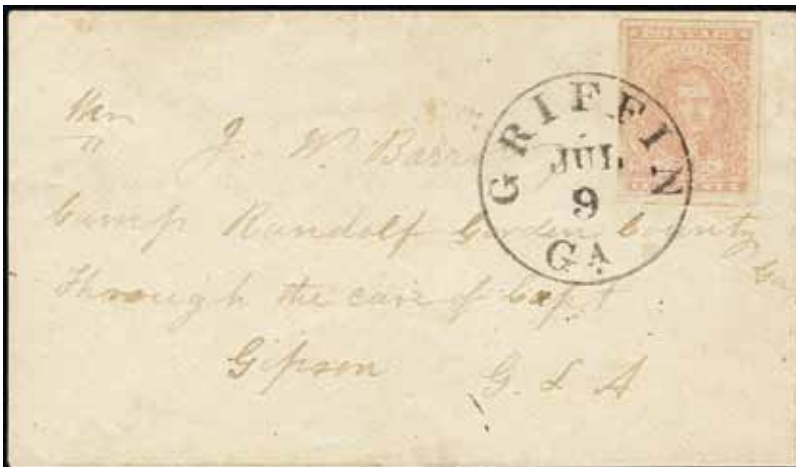 POSTAGE
GRIFFIN
JUL
9
GA
J. W.
Camp Randolf Gordon County
Ga
Through the care of Capt
Gipson G. S. A